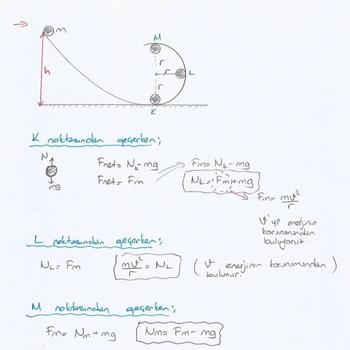 m
M
h
r
r
L
r
K
K noktasından geçerken;
N
mg
Fnet = Nk - mg
Fnet = Fm
Fm = Nk - mg
Nk = Fm + mg
Fm = mv²/r
V'yi enerjinin
korunumundan
buluyoruz
L noktasından geçerken;
NL = Fm
mv²/r = NL
( V enerjinin korunumundan
bulunur. )
M noktasından geçerken;
Fm = Nm + mg
Nm = Fm - mg